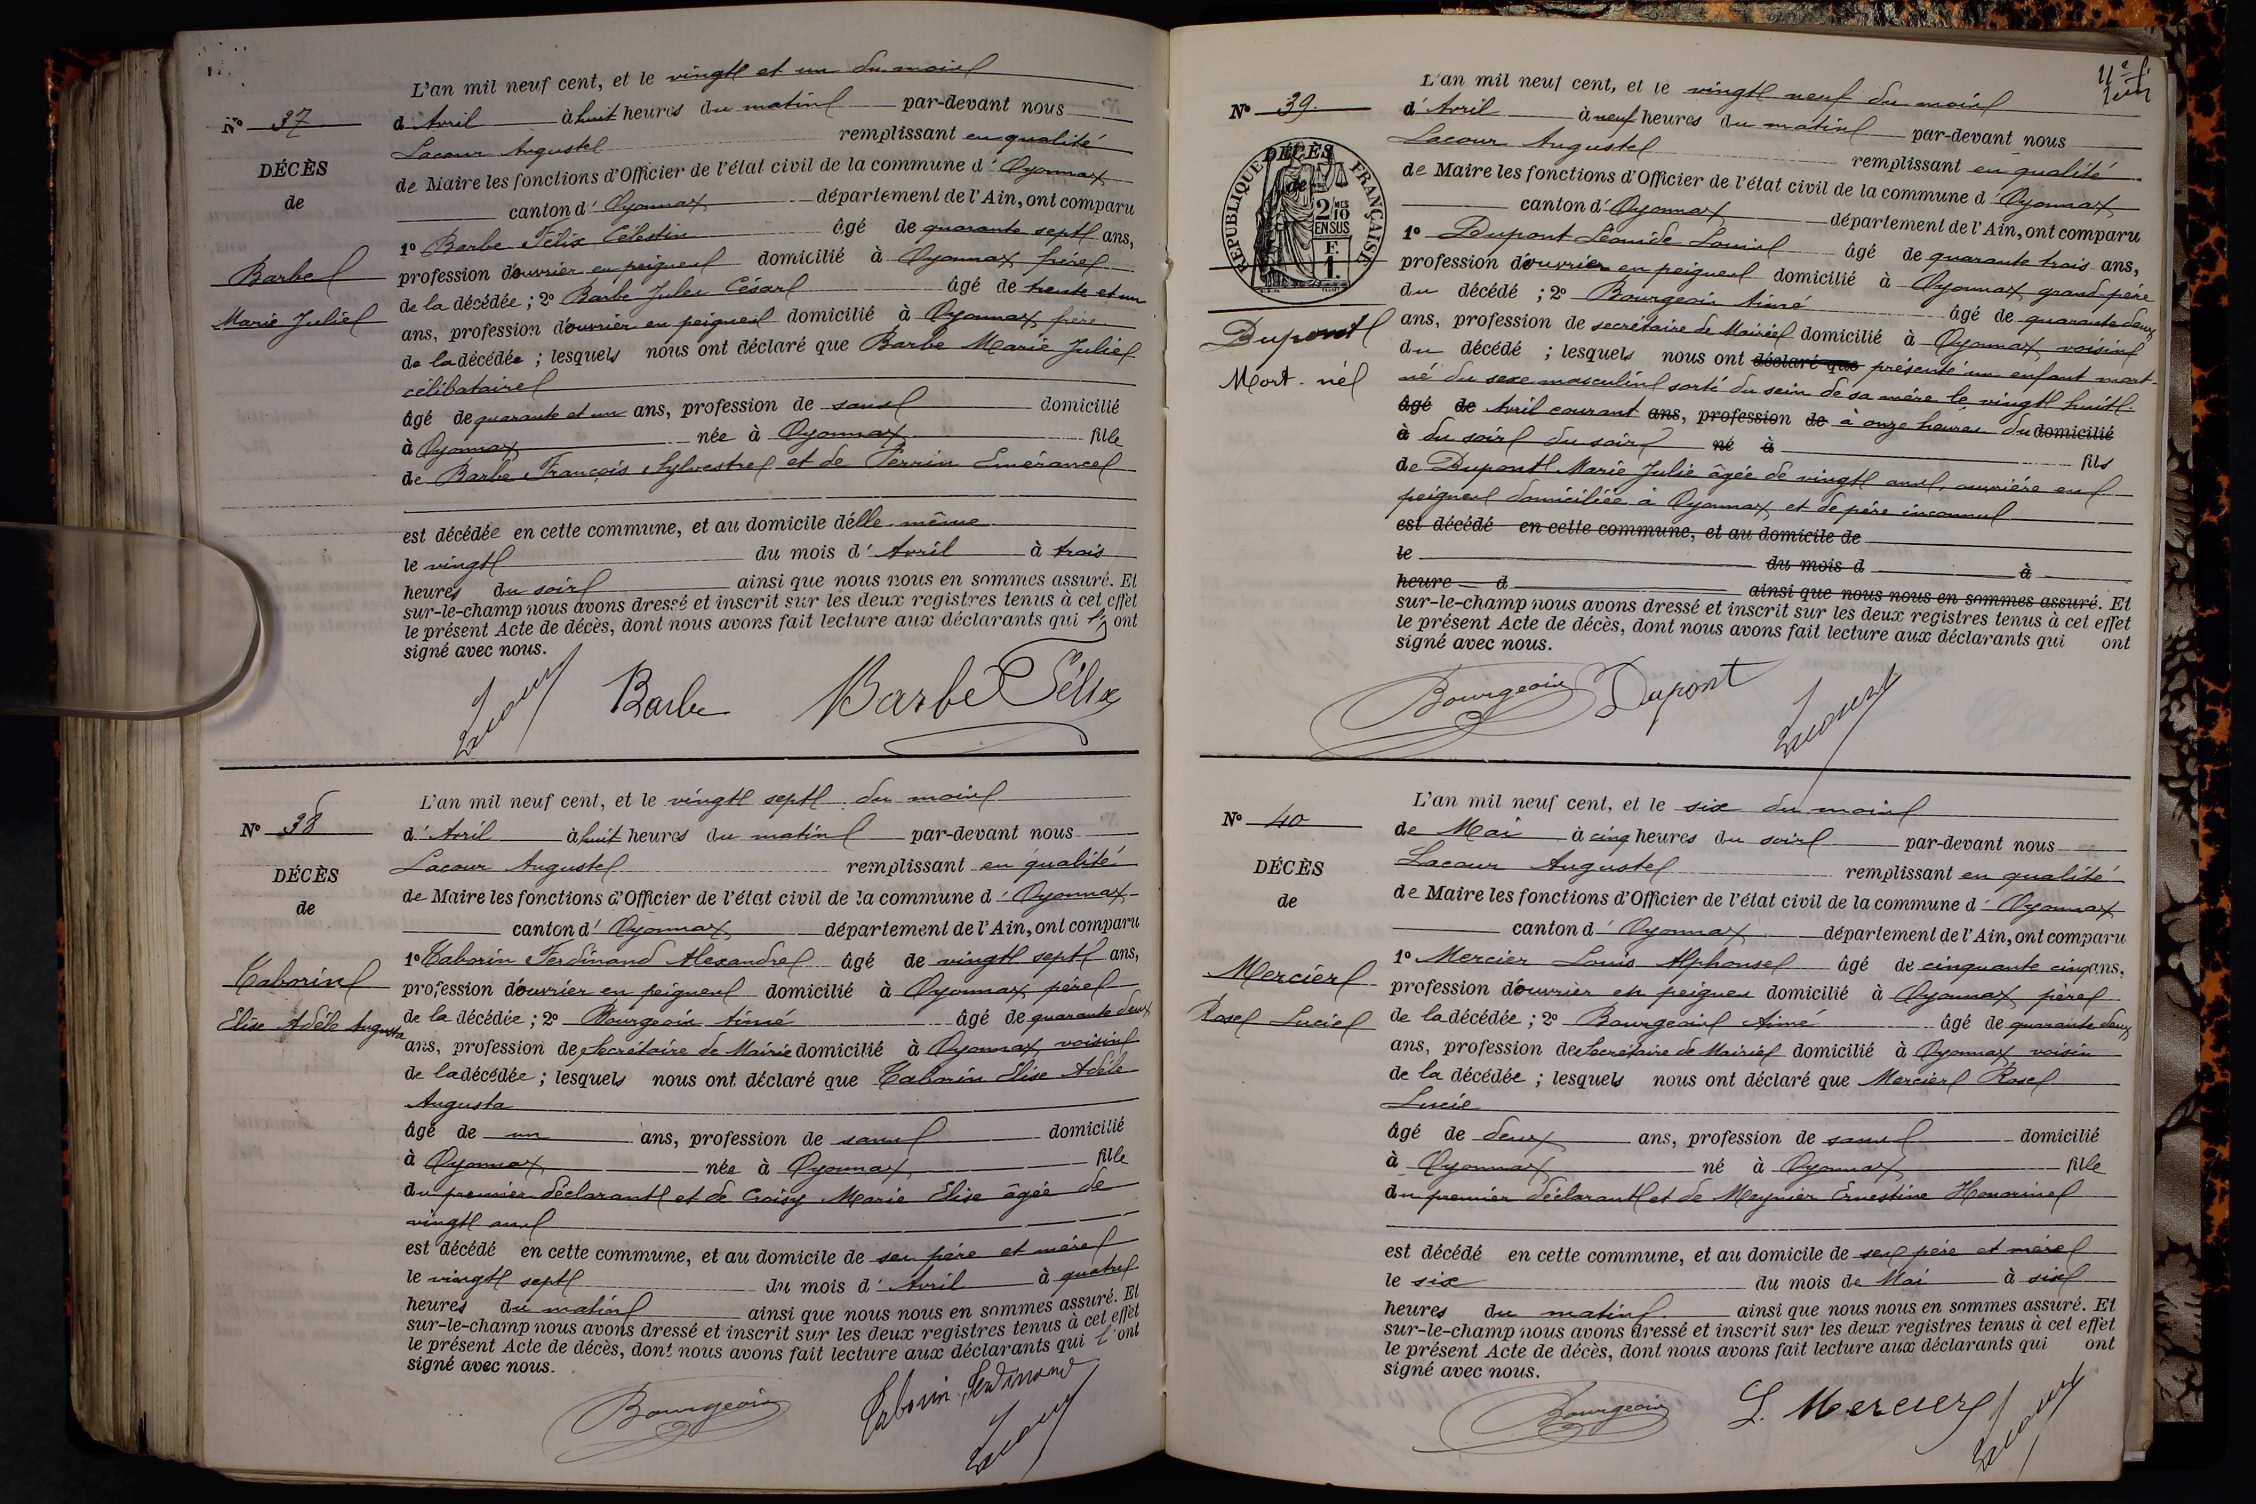 L'an mil neuf cent, et le vingt et un du mois
N° 37
d'Avril à huit heures du matin par-devant nous
Lacour Auguste remplissant en qualité
DÉCÈS
de Maire les fonctions d'Officier de l'état civil de la commune d'Oyonnax
de
canton d'Oyonnax département de l'Ain, ont comparu
1° Barbe Félix Célestin âgé de quarante sept ans,
Barbe
profession d'ouvrier en peignes domicilié à Oyonnax frère
de la décédée ; 2° Barbe Jules César âgé de trente et un
Marie Julie
ans, profession d'ouvrier en peignes domicilié à Oyonnax frère
de la décédée ; lesquels nous ont déclaré que Barbe Marie Julie
célibataire
âgé de quarante et un ans, profession de sans domicilié
à Oyonnax née à Oyonnax fille
de Barbe François Sylvestre et de Perrin Emérance
est décédée en cette commune, et au domicile d'elle-même
le vingt du mois d'Avril à trois
heures du soir ainsi que nous nous en sommes assuré. Et
sur-le-champ nous avons dressé et inscrit sur les deux registres tenus à cet effet
le présent Acte de décès, dont nous avons fait lecture aux déclarants qui l'y ont
signé avec nous.
Lacour Barbe Barbe Félix
L'an mil neuf cent, et le vingt sept du mois
N° 38
d'Avril à huit heures du matin par-devant nous
Lacour Auguste remplissant en qualité
DÉCÈS
de Maire les fonctions d'Officier de l'état civil de la commune d'Oyonnax
de
canton d'Oyonnax département de l'Ain, ont comparu
1° Taborin Ferdinand Alexandre âgé de vingt sept ans,
Taborin
profession d'ouvrier en peignes domicilié à Oyonnax père
de la décédée ; 2° Bourgeois Aimé âgé de quarante deux
Elise Adèle Augusta
ans, profession de Secrétaire de Mairie domicilié à Oyonnax voisin
de la décédée ; lesquels nous ont déclaré que Taborin Elise Adèle
Augusta
âgé de un ans, profession de sans domicilié
à Oyonnax née à Oyonnax fille
du premier déclarant et de Croisy Marie Elise âgée de
vingt ans
est décédé en cette commune, et au domicile de ses père et mère
le vingt sept du mois d'Avril à quatre
heures du matin ainsi que nous nous en sommes assuré. Et
sur-le-champ nous avons dressé et inscrit sur les deux registres tenus à cet effet
le présent Acte de décès, dont nous avons fait lecture aux déclarants qui l'ont
signé avec nous.
Bourgeois Taborin Ferdinand
Lacour
L'an mil neuf cent, et le vingt neuf du mois
N° 39.
d'Avril à neuf heures du matin par-devant nous
Lacour Auguste remplissant en qualité
DÉCÈS
de
RÉPUBLIQUE FRANÇAISE
2/10 MES
EN SUS
F.
1.
de Maire les fonctions d'Officier de l'état civil de la commune d'Oyonnax
canton d'Oyonnax département de l'Ain, ont comparu
1° Dupont Léonide Louis âgé de quarante trois ans,
profession d'ouvrier en peignes domicilié à Oyonnax grand père
du décédé ; 2° Bourgeois Aimé âgé de quarante deux
Dupont
ans, profession de secrétaire de Mairie domicilié à Oyonnax voisin
du décédé ; lesquels nous ont déclaré que présenté un enfant mort-
Mort-né
né du sexe masculin sorti du sein de sa mère le vingt huit
âgé de Avril courant ans, profession de à onze heures du domicilié
à du soir du soir né à fils
de Dupont Marie Julie âgée de vingt ans, ouvrière en
peignes domiciliée à Oyonnax et de père inconnu
est décédé en cette commune, et au domicile de
le du mois d à
heure d ainsi que nous nous en sommes assuré. Et
sur-le-champ nous avons dressé et inscrit sur les deux registres tenus à cet effet
le présent Acte de décès, dont nous avons fait lecture aux déclarants qui ont
signé avec nous.
Bourgeois Dupont Lacour
L'an mil neuf cent, et le six du mois
N° 40
de Mai à cinq heures du soir par-devant nous
Lacour Auguste remplissant en qualité
DÉCÈS
de Maire les fonctions d'Officier de l'état civil de la commune d'Oyonnax
de
canton d'Oyonnax département de l'Ain, ont comparu
1° Mercier Louis Alphonse âgé de cinquante cinq ans,
Mercier
profession d'ouvrier en peignes domicilié à Oyonnax père
de la décédée ; 2° Bourgeois Aimé âgé de quarante deux
Rose Lucie
ans, profession de Secrétaire de Mairie domicilié à Oyonnax voisin
de la décédée ; lesquels nous ont déclaré que Mercier Rose
Lucie
âgé de deux ans, profession de sans domicilié
à Oyonnax né à Oyonnax fille
du premier déclarant et de Meynier Ernestine Honorine
est décédé en cette commune, et au domicile de ses père et mère
le six du mois de Mai à six
heures du matin ainsi que nous nous en sommes assuré. Et
sur-le-champ nous avons dressé et inscrit sur les deux registres tenus à cet effet
le présent Acte de décès, dont nous avons fait lecture aux déclarants qui ont
signé avec nous.
Bourgeois L. Mercier Lacour